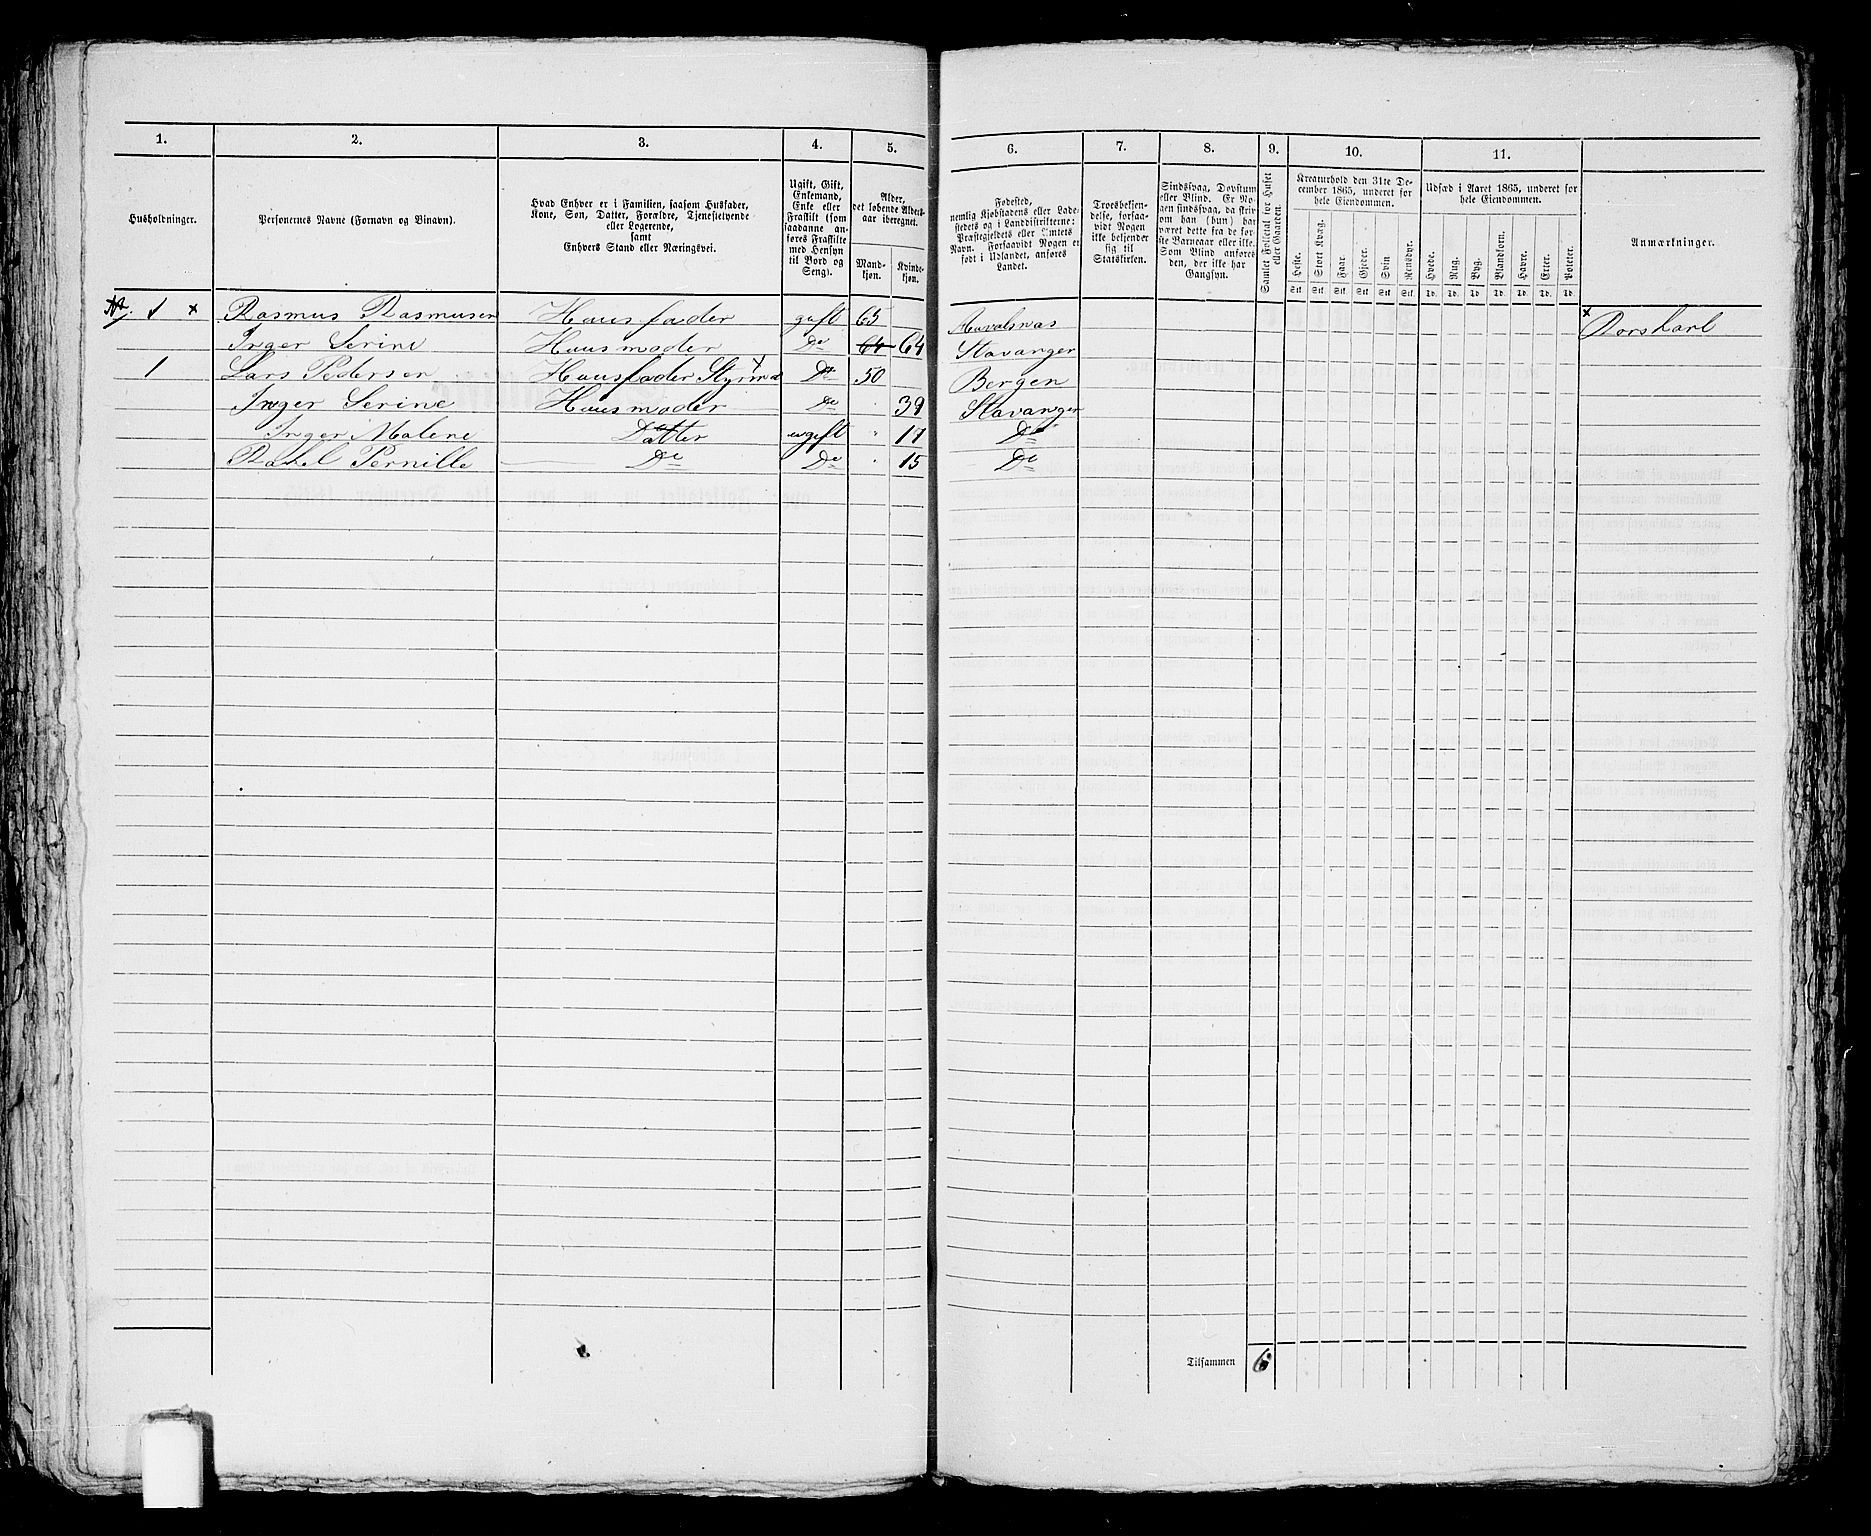 1. 2. 3. 4. 5. 6. 7. 8. 9. 10. 11.
Husholdninger.
Personernes Navne (Fornavn og Binavn).
Hvad Enhver er i Familien, saasom Husfader,
Kone, Søn, Datter, Forældre, Tjenestetyende
eller Logerende,
samt
Enhvers Stand eller Næringsvei.
Ugift, Gift,
Enkemand,
Enke eller
Fraskilt (som
saadanne an-
føres Fraskilte
med Hensyn
til Bord og
Seng).
Alder,
det løbende Alders-
aar iberegnet.
Mand-
kjøn.
Kvinde-
kjøn.
Fødested,
nemlig Kjøbstadens eller Lade-
stedets og i Landdistrikterne:
Præstegjeldets eller Amtets
Navn. Forsaavidt Nogen er
født i Udlandet, anføres
Landet.
Troesbekjen-
delse, forsaa-
vidt Nogen
ikke bekjender
sig til
Statskirken.
Sindssvag, Døvstum
eller Blind. Er No-
gen sindssvag, da skriv
om han (hun) har
været dette fra de før-
ste Barneaar eller ikke.
Som Blind anføres
den, der ikke har
Gangsyn.
Samlet Folketal for Huset
eller Gaarden.
Kreaturhold den 31te De-
cember 1865, underet for
hele Eiendommen.
Heste. Stort Kvæg. Faar. Gjeder. Svin Rensdyr.
Stk. Stk. Stk. Stk. Stk. Stk.
Udsæd i Aaret 1865, underet for
hele Eiendommen.
Hvede. Rug. Byg. Blandkorn. Havre. Erter. Poteter.
Td. Td. Td. Td. Td. Td. Td.
Anmærkninger.
1 × Rasmus Rasmusen Huusfader gift 65 Havalsnas × Dorskarl
Inger Serine Huusmoder Do 64 64 Stavanger
1 Lars Pedersen Huusfader Do 50 Bergen
Inger Serine Huusmoder Do 39 Stavanger
Inger Malene Datter ugift " 17 Do
Rakel Pernille Do Do " 15 Do
Tilsammen 6